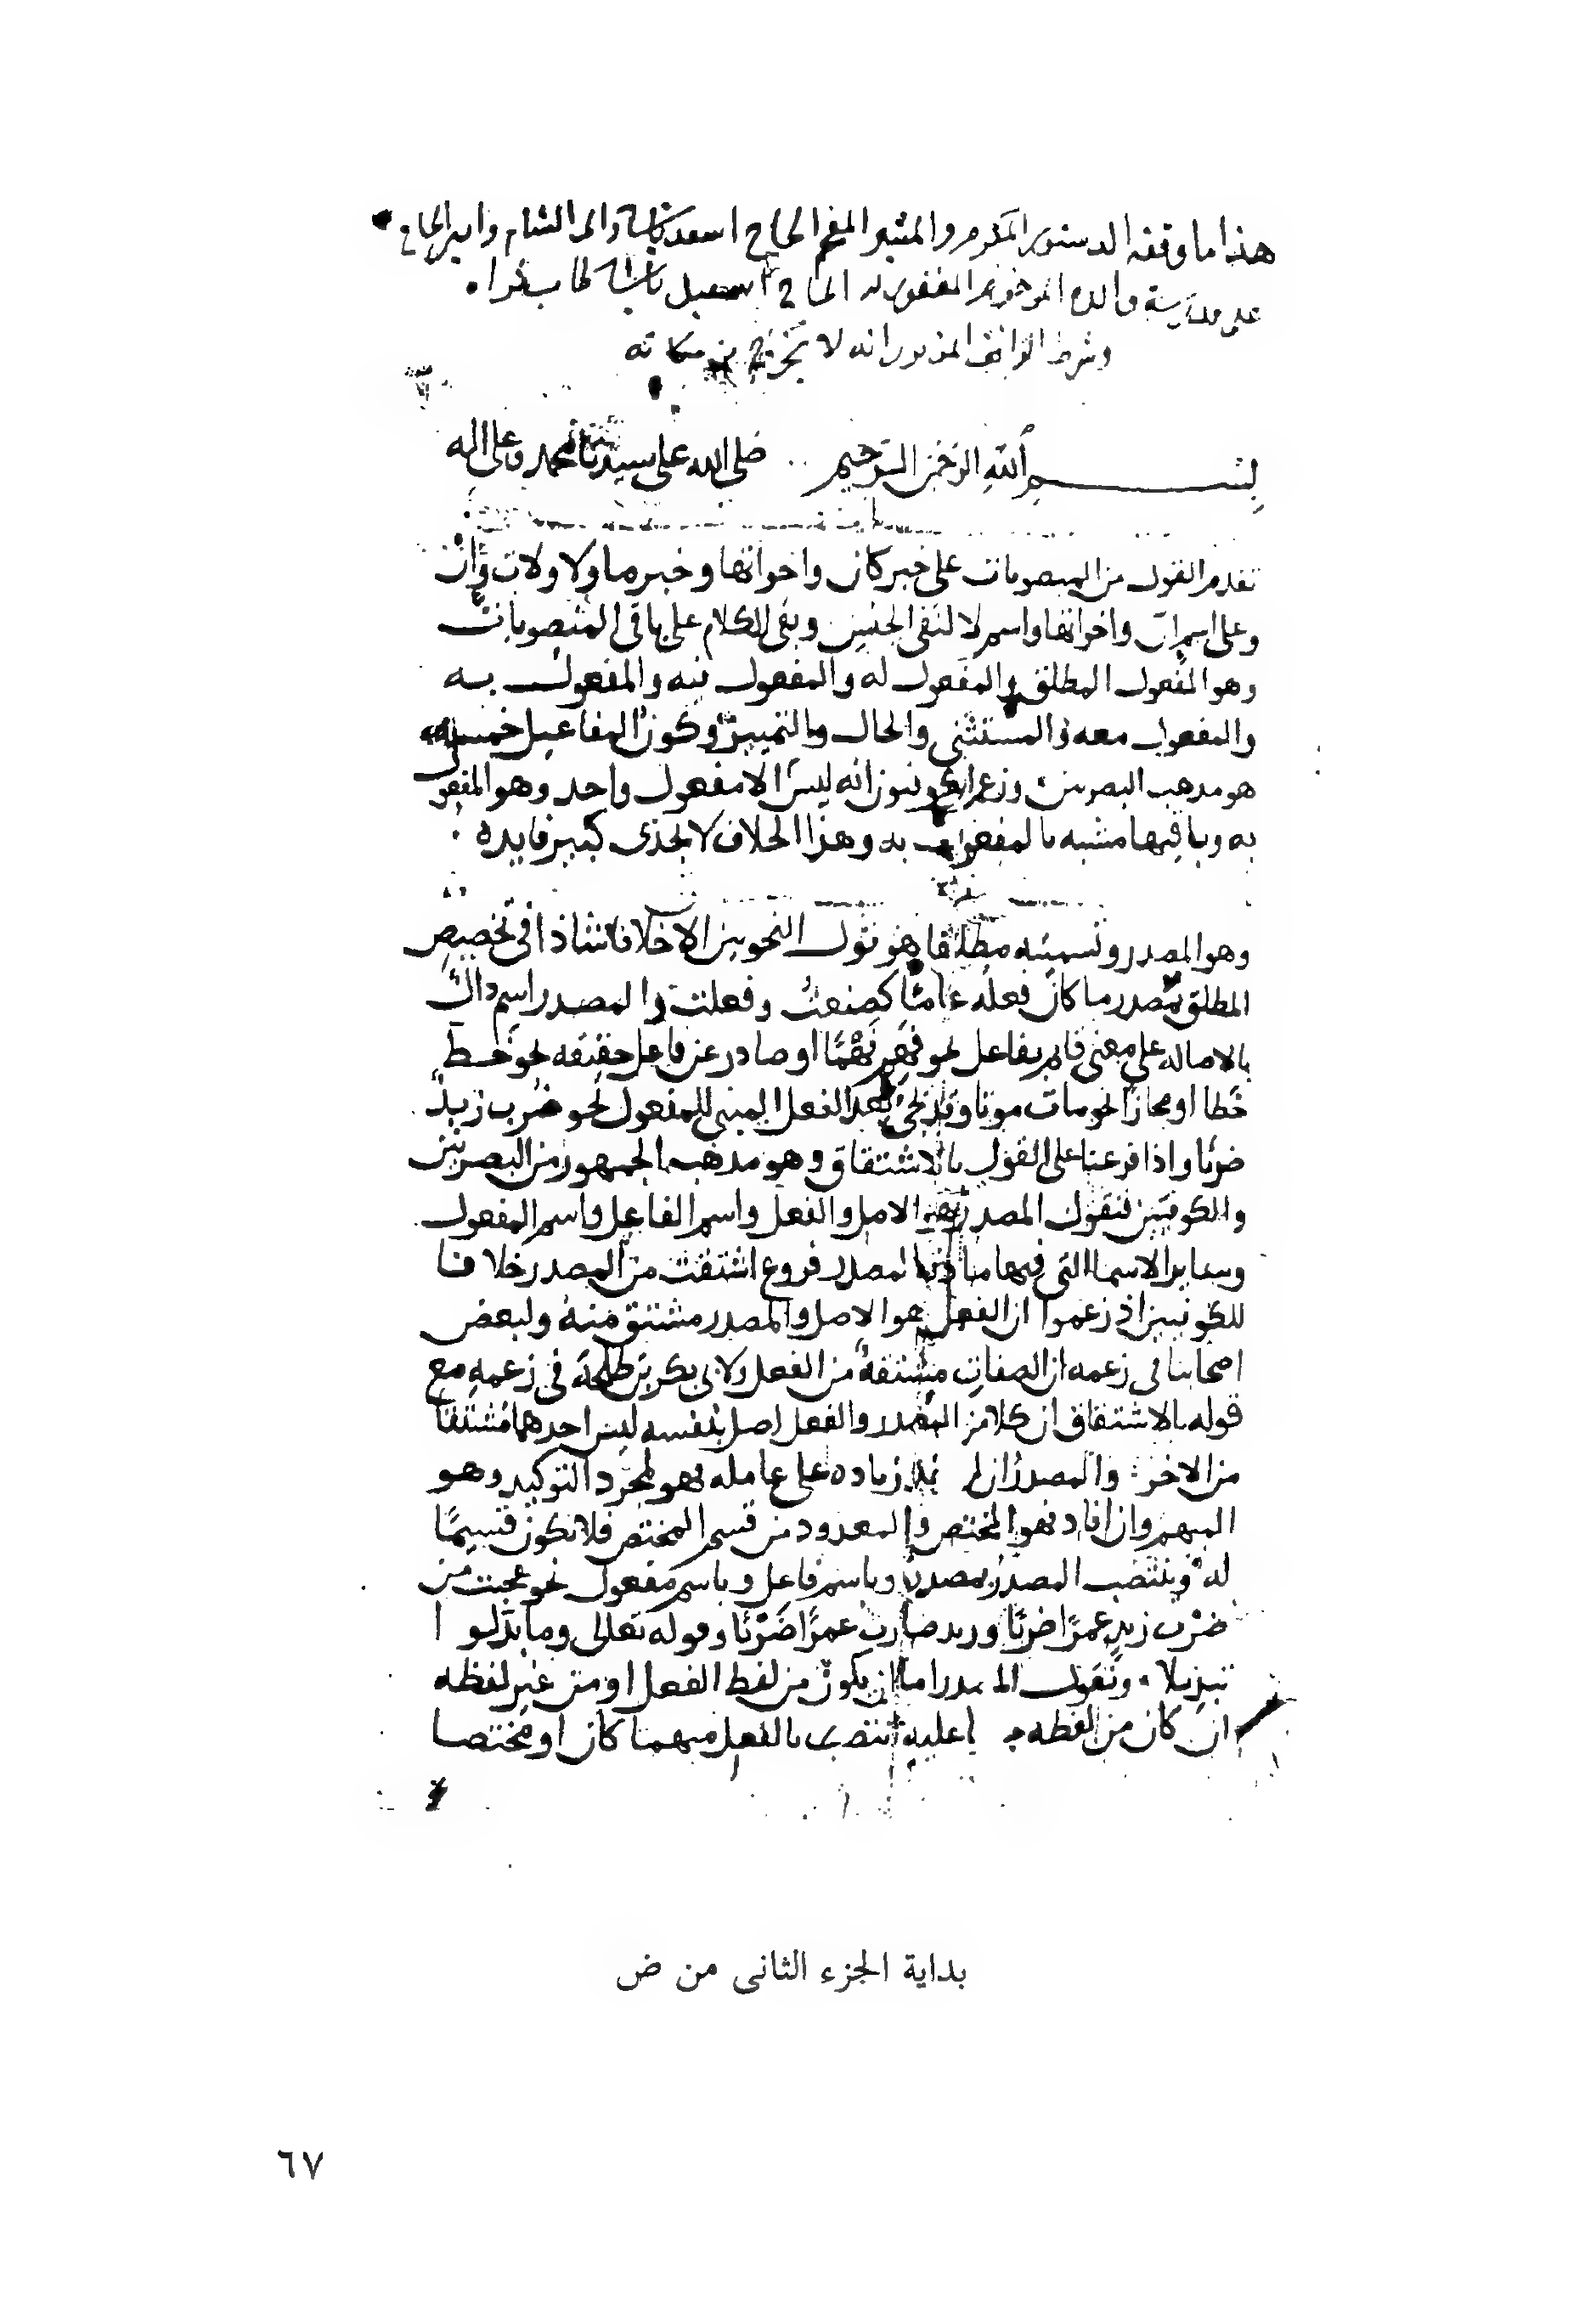 هذا ما وقفه الدستور المكرم والمشير المفخم الحاج اسعد باشا والى الشام وامير الحاج
على مدرسة والده المرحوم المغفور له الحاج اسمعيل باشا
وشرط الواقف المزبور انه لا يخرج من مكانه
بسم الله الرحمن الرحيم صلى الله على سيدنا محمد وعلى اله
تقدم القول من المنصوبات على خبر كان واخواتها وخبر ما ولا ولات وان
وعلى اسم ان واخواتها واسم لا لنفى الجنس وبقى الكلام على باقى المنصوبات
وهو المفعول المطلق والمفعول له والمفعول فيه والمفعول به
والمفعول معه والمستثنى والحال والتمييز وكون المفاعيل خمسه
هو مذهب البصريين وزعم الكوفيون انه ليس الا مفعول واحد وهو المفعول
به وباقيها مشبه بالمفعول به وهذا الخلاف لا يجدى كبير فايده
وهو المصدر وتسميته مطلقا هو قول النحويين الا خلافا شاذا فى تخصيص
المطلق بمصدر ما كان فعله عاما كصنعت وفعلت والمصدر اسم دال
بالاصاله على معنى قايم بفاعل نحو فهم فهما او صادر عن فاعل حقيقه نحو خط
خطا او مجازا نحو مات موتا وقد يجى بعد الفعل المبنى للمفعول نحو ضرب زيد
ضربا واذا فرعنا على القول بالاشتقاق وهو مذهب الجمهور من البصريين
والكوفيين فنقول المصدر هو الاصل والفعل واسم الفاعل واسم المفعول
وساير الاسما التى فيها مادة المصدر فروع اشتقت من المصدر خلافا
للكوفيين اذ زعموا ان الفعل هو الاصل والمصدر مشتق منه ولبعض
اصحابنا فى زعمه ان الصفات مشتقة من الفعل ولابى بكر بن طلحة فى زعمه مع
قوله بالاشتقاق ان كلا من المصدر والفعل اصل بنفسه ليس احدهما مشتقا
من الاخر والمصدر ان لم يفد زياده على عامله فهو لمجرد التوكيد وهو
المبهم وان افاد فهو المختص والمعدود من قسم المختص فلا يكون قسيما
له وينتصب المصدر بمصدر وباسم فاعل وباسم مفعول نحو عجبت من
ضرب زيد عمرا ضربا وزيد ضارب عمرا ضربا وقوله تعالى وما بدلوا
تبديلا ونقول المصدر اما ان يكون من لفظ الفعل او من غير لفظه
ان كان من لفظه انتصب بالفعل مبهما كان او مختصا
بداية الجزء الثانى من ض
٦٧